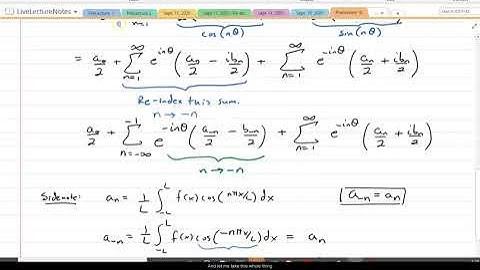 LiveLectureNotes
n=1 cos(nθ) n=1 sin(nθ)
= a₀/2 + ∑_{n=1}^{∞} e^{inθ} (aₙ/2 − ibₙ/2) + ∑_{n=1}^{∞} e^{-inθ} (aₙ/2 + ibₙ/2)
Re-index this sum.
n → -n
a₀/2 + ∑_{n=-∞}^{-1} e^{-inθ} (a₋ₙ/2 − b₋ₙ/2) + ∑_{n=1}^{∞} e^{-inθ} (aₙ/2 + ibₙ/2)
n → -n
Sidenote: aₙ = 1/L ∫_{-L}^{L} f(x) cos(nπx/L) dx a₋ₙ = aₙ
a₋ₙ = 1/L ∫_{-L}^{L} f(x) cos(-nπx/L) dx = aₙ
And let me take this whole thing